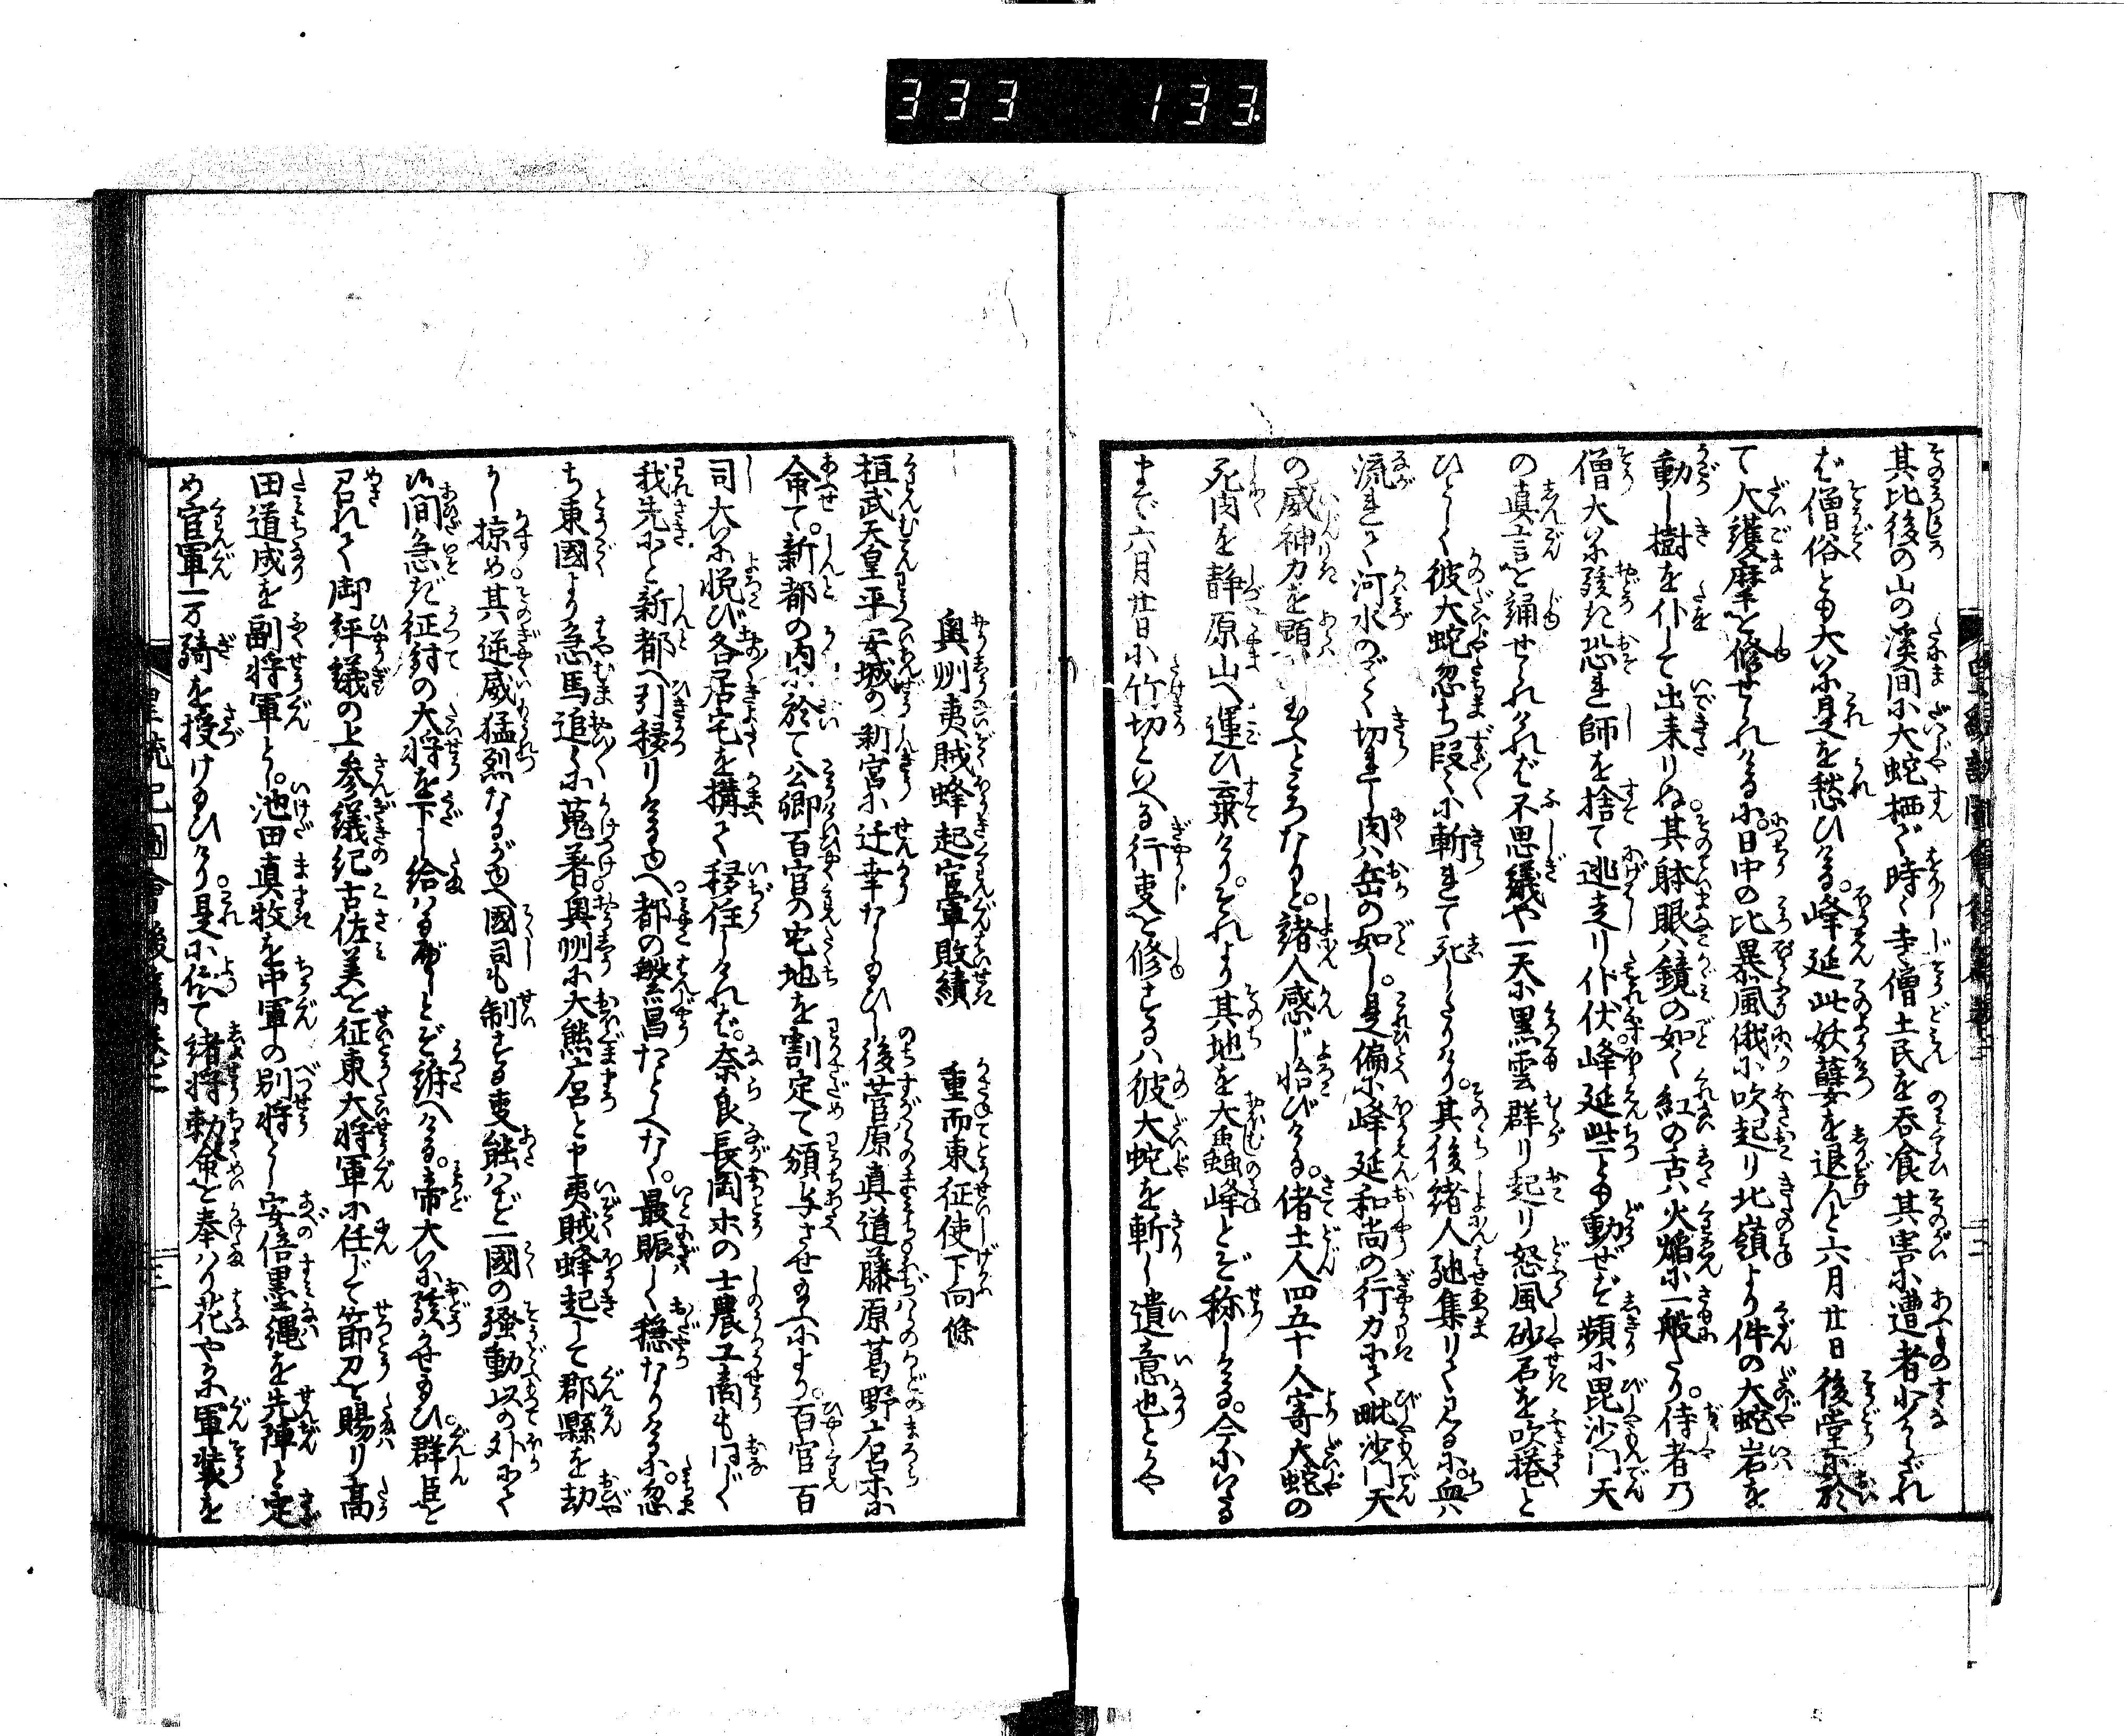 333 133
其比後の山の溪間に大蛇栖で時〻寺僧土民を呑食其害に遭者少からざれ
ば僧俗とも大いに是を愁ひける。峰延此妖孽を退んと六月廿日後堂に於
て大護摩を修せられけるに。日中の比暴風俄に吹起り北嶺より件の大蛇岩を
動し樹を仆して出来りぬ。其躰眼ハ鏡の如く紅の舌ハ火焔に一般たり。侍者乃
僧大いに駭き恐れ師を捨て逃走り仆伏峰延些とも動ぜず頻に毘沙门天
の真言を誦せられけれバ不思議や一天に黒雲群り起り怒風砂石を吹捲と
ひとしく彼大蛇忽ち段〻に斬れて死したりけり。其後緒人馳集りて見るに。血ハ
流れて河水のごとく切れし肉ハ岳の如し。是偏に峰延和尚の行力にて毗沙门天
の威神力を顕ハし玉ふところなりと。諸人感じ怡びける。偖土人四五十人寄大蛇の
死肉を静原山へ運ひ棄けり。それより其地を大蟲峰とぞ称しける。今にいたる
まで六月廿日に竹切といへる行事を修するハ彼大蛇を斬し遺意也とかや
奥州夷賊蜂起官軍敗績 重而東征使下向條
桓武天皇平安城の新宮に迁幸なし玉ひし後菅原真道藤原葛野麻呂ホに
命て。新都の内に於て公卿百官の宅地を割定て頒与させ玉ふにより。百官百
司大いに悦び各居宅を構て移住しけれバ。奈良長岡ホの士農工商も同じく
我先にと新都へ引移りけるゆへ都の繫昌たとへなく。最賑しく穏なりけるに。忽
ち東國より急馬追〻に蒐着奥州に大熊麿と申夷賊蜂起して郡縣を劫
かし掠め其逆威猛烈なるがゆへ國司も制する叓能ハず二國の騒動以の外にて
候間急ぎ征討の大将を下し給ハるべしとぞ訴へける。帝大いに駭かせ玉ひ群臣を
召れて御評議の上参議紀古佐美を征東大将軍に任じて節刀を賜り髙
田道成を副将軍とし。池田真牧を中軍の別将とし安倍墨縄を先陣と定
め官軍一万騎を授け玉ひけり。是に仍て諸将勅命を奉ハり花やかに軍装を